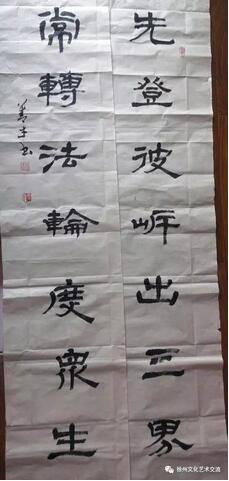 先登彼岍出三界
常轉法輪度衆生
徐州文化艺术交流